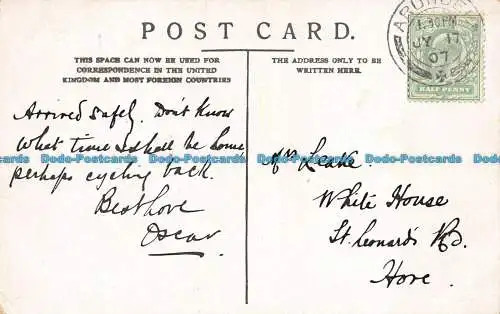 POST CARD.
THIS SPACE CAN NOW BE USED FOR
CORRESPONDENCE IN THE UNITED
KINGDOM AND MOST FOREIGN COUNTRIES
THE ADDRESS ONLY TO BE
WRITTEN HERE.
ARUNDEL
1.30 PM
JY 17
07
HALF PENNY
Arrived safely. Don't know
What time I shall be home
perhaps cycling back.
Best love
Oscar
Leake.
White House
St. Leonards Rd.
Hove.
Dodo-Postcards Dodo-Postcards Dodo-Postcards Dodo-Postcards